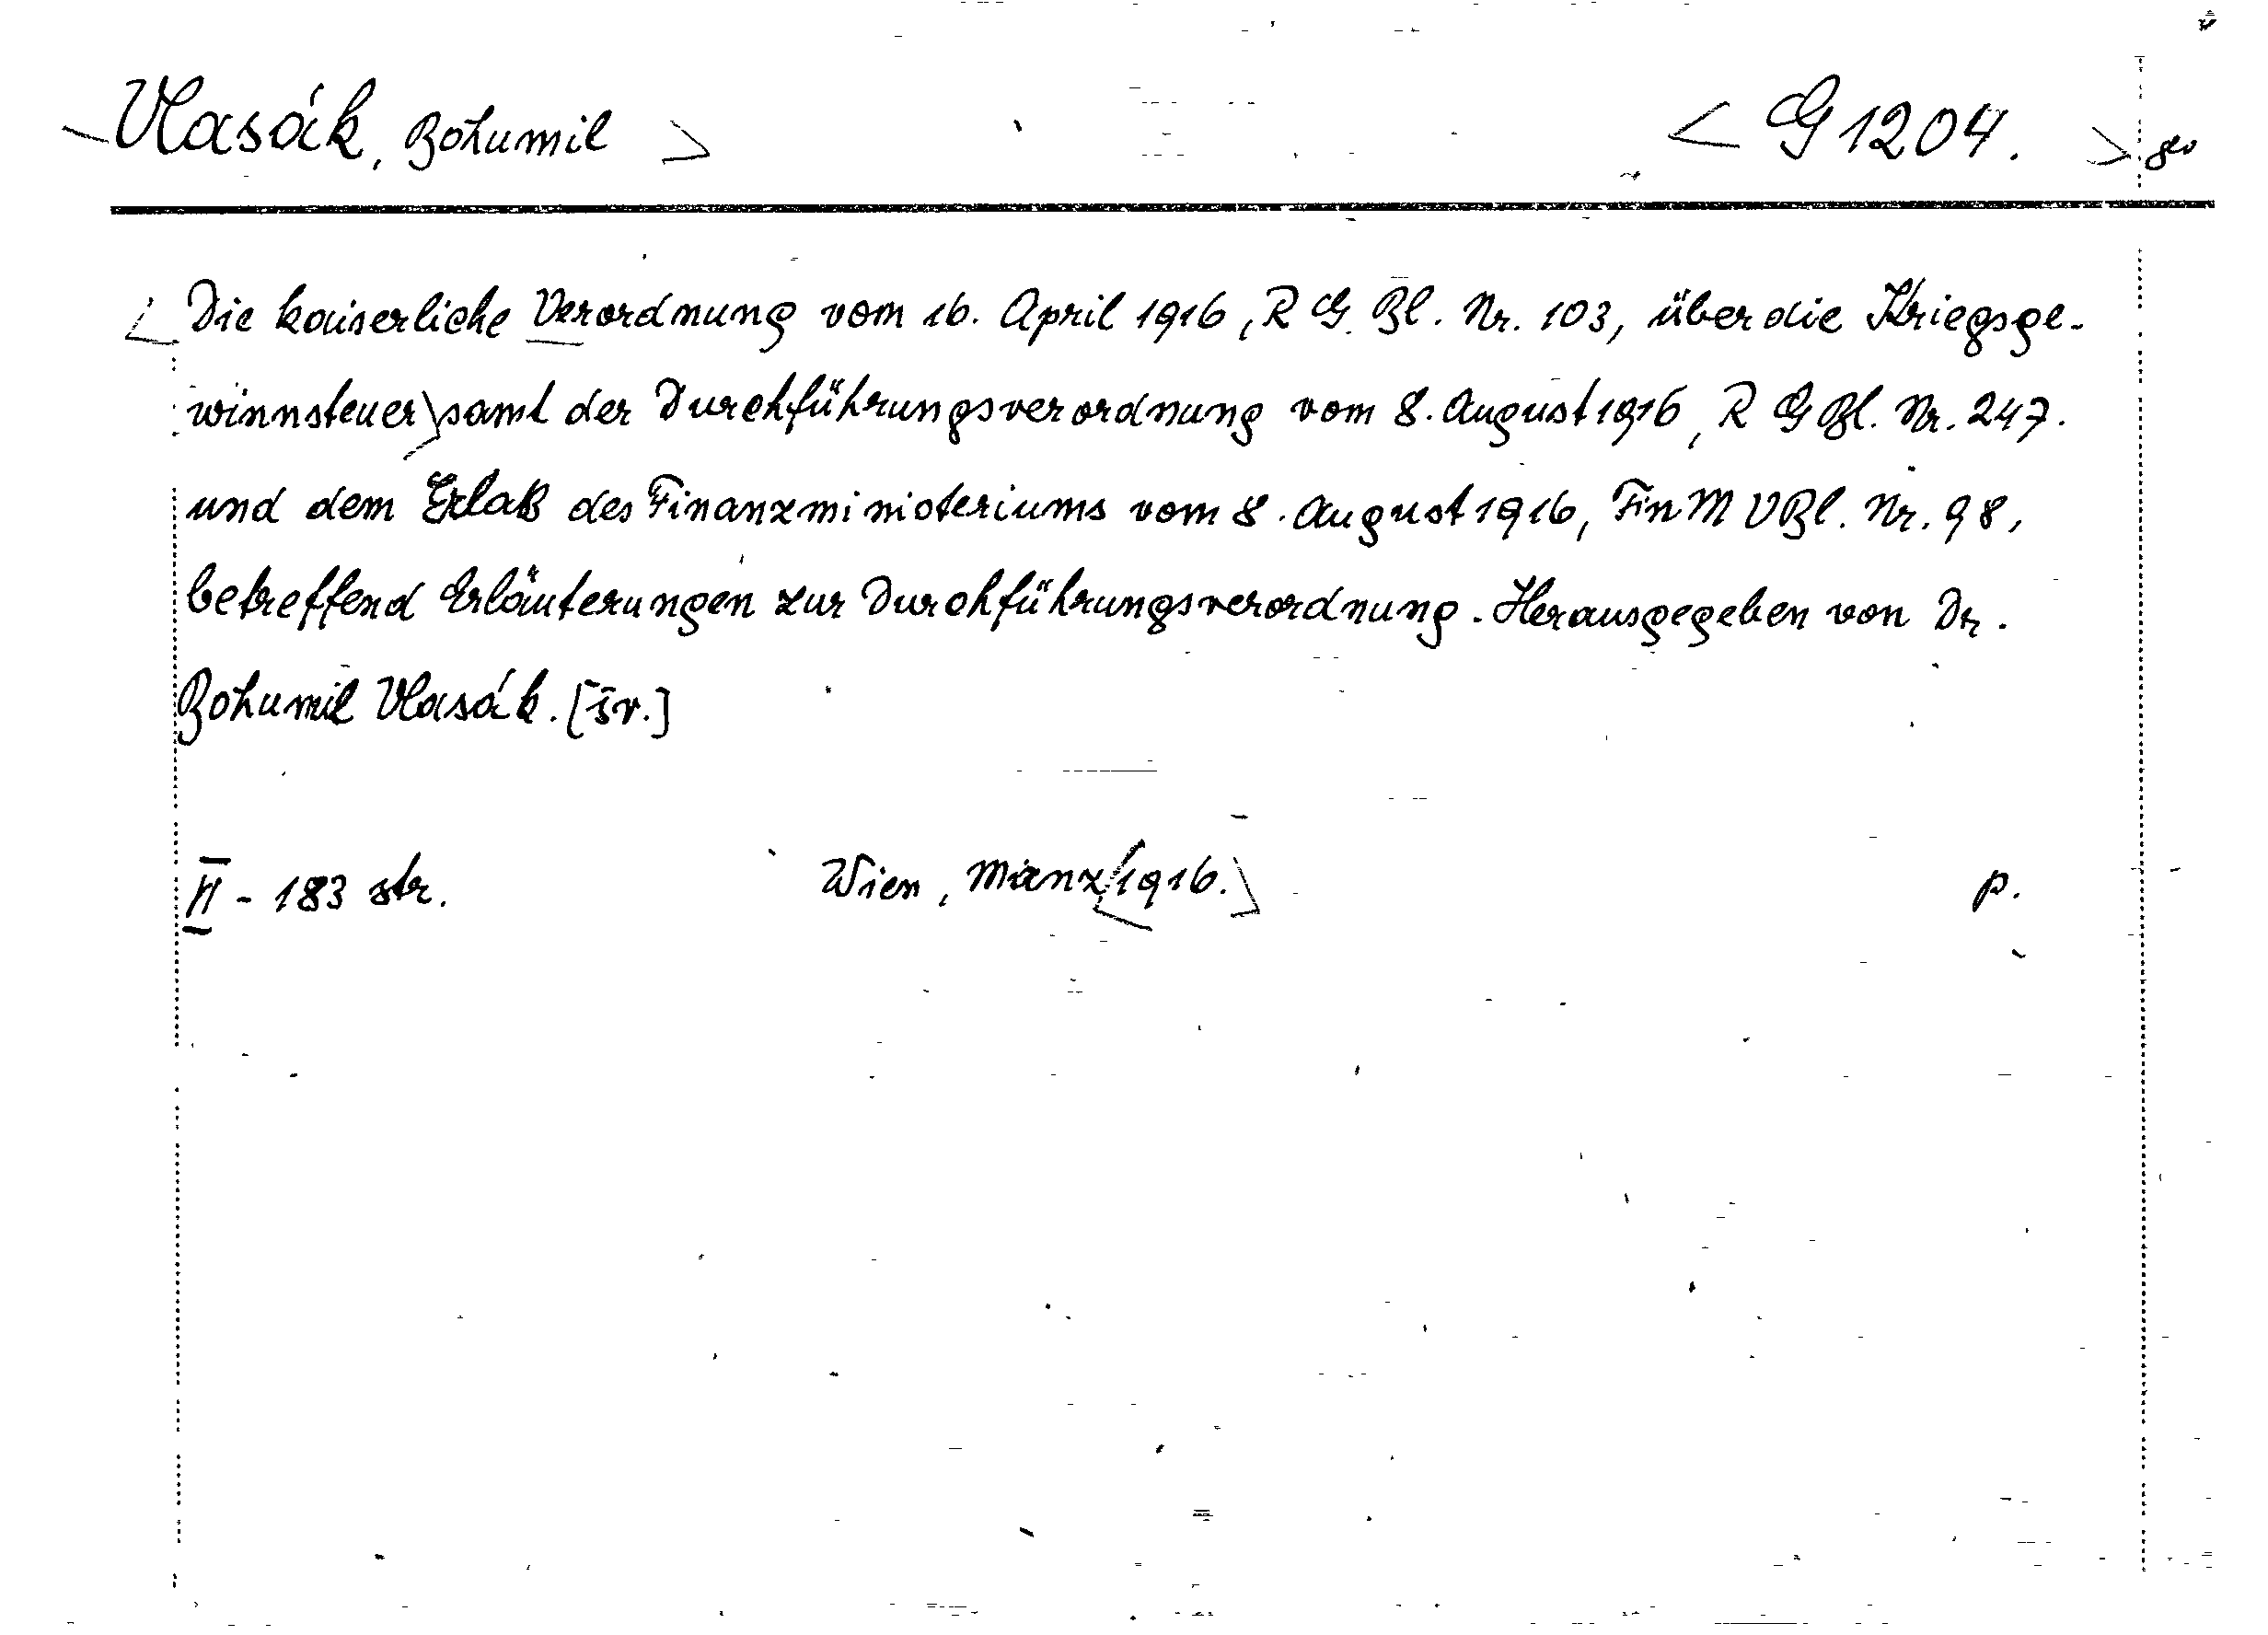 Vlasák, Bohumil < G 1204. > 8°
Die kaiserliche Verordnung vom 16. April 1916, R G Bl. Nr. 103, über die Kriegsge-
winnsteuer samt der Durchführungsverordnung vom 8. August 1916, R G Bl. Nr. 247.
und dem Erlaß des Finanzministeriums vom 8. August 1916, Fin M V Bl. Nr. 98,
betreffend Erläuterungen zur Durchführungsverordnung. Herausgegeben von Dr.
Bohumil Vlasák. [šv.]
II - 183 str. Wien, Manz, 1916. p.